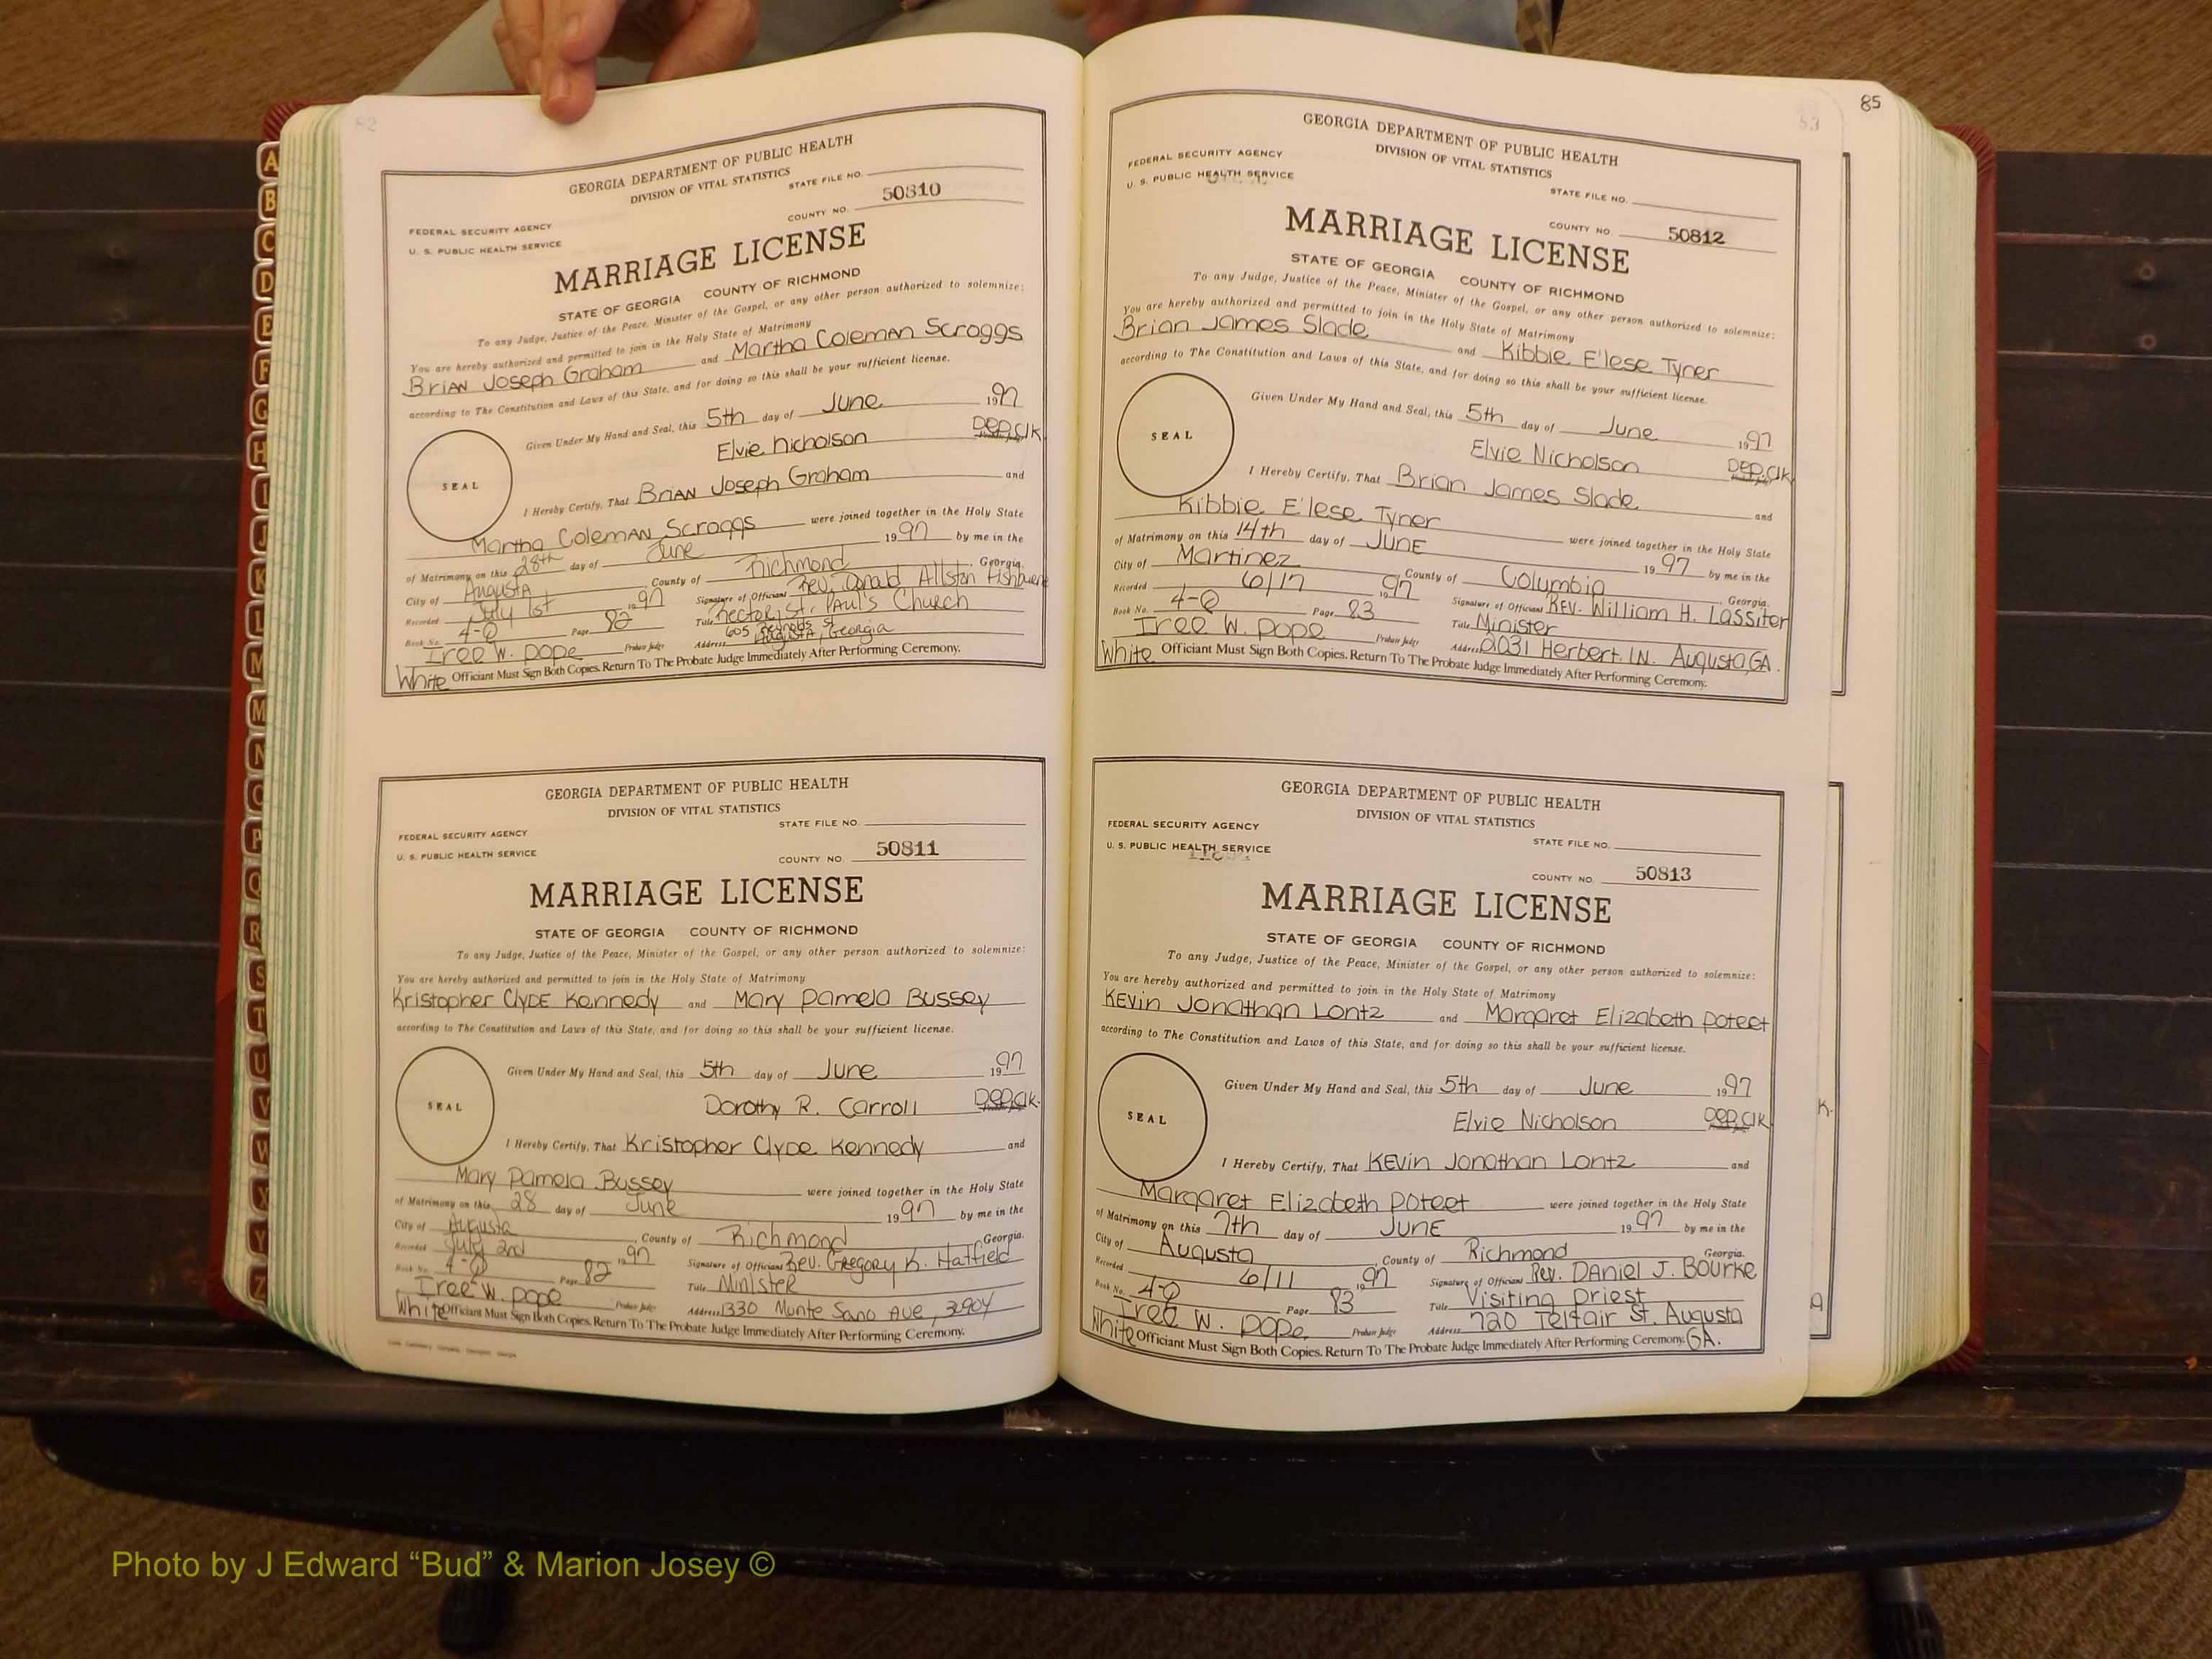 82
GEORGIA DEPARTMENT OF PUBLIC HEALTH
DIVISION OF VITAL STATISTICS
STATE FILE NO.
FEDERAL SECURITY AGENCY
U. S. PUBLIC HEALTH SERVICE
COUNTY NO. 50810
MARRIAGE LICENSE
STATE OF GEORGIA COUNTY OF RICHMOND
To any Judge, Justice of the Peace, Minister of the Gospel, or any other person authorized to solemnize:
You are hereby authorized and permitted to join in the Holy State of Matrimony
Brian Joseph Graham and Martha Coleman Scroggs
according to The Constitution and Laws of this State, and for doing so this shall be your sufficient license.
Given Under My Hand and Seal, this 5th day of June 1997
Elvie Nicholson Dep. Clk.
SEAL
I Hereby Certify, That Brian Joseph Graham and
Martha Coleman Scroggs were joined together in the Holy State
of Matrimony on this 28th day of June 1997 by me in the
City of Augusta County of Richmond Georgia.
Recorded July 1st 1997 Signature of Officiant Rev. Donald Allston Fishburne
Book No. 4-Q Page 82 Title Rector, St. Paul's Church
Iree W. Pope Probate Judge Address 605 Reynolds St. Augusta, Georgia
White Officiant Must Sign Both Copies. Return To The Probate Judge Immediately After Performing Ceremony.
GEORGIA DEPARTMENT OF PUBLIC HEALTH
DIVISION OF VITAL STATISTICS
STATE FILE NO.
FEDERAL SECURITY AGENCY
U. S. PUBLIC HEALTH SERVICE
COUNTY NO. 50811
MARRIAGE LICENSE
STATE OF GEORGIA COUNTY OF RICHMOND
To any Judge, Justice of the Peace, Minister of the Gospel, or any other person authorized to solemnize:
You are hereby authorized and permitted to join in the Holy State of Matrimony
Kristopher Clyde Kennedy and Mary Pamela Bussey
according to The Constitution and Laws of this State, and for doing so this shall be your sufficient license.
Given Under My Hand and Seal, this 5th day of June 1997
Dorothy R. Carroll Dep. Clk.
SEAL
I Hereby Certify, That Kristopher Clyde Kennedy and
Mary Pamela Bussey were joined together in the Holy State
of Matrimony on this 28 day of June 1997 by me in the
City of Augusta County of Richmond Georgia.
Recorded July 2nd 1997 Signature of Officiant Rev. Gregory K. Hatfield
Book No. 4-Q Page 82 Title Minister
Iree W. Pope Probate Judge Address 1330 Monte Sano Ave, 30904
White Officiant Must Sign Both Copies. Return To The Probate Judge Immediately After Performing Ceremony.
83
85
GEORGIA DEPARTMENT OF PUBLIC HEALTH
DIVISION OF VITAL STATISTICS
FEDERAL SECURITY AGENCY
U. S. PUBLIC HEALTH SERVICE
STATE FILE NO.
COUNTY NO 50812
MARRIAGE LICENSE
STATE OF GEORGIA COUNTY OF RICHMOND
To any Judge, Justice of the Peace, Minister of the Gospel, or any other person authorized to solemnize:
You are hereby authorized and permitted to join in the Holy State of Matrimony
Brian James Slade and Kibbie E'lese Tyner
according to The Constitution and Laws of this State, and for doing so this shall be your sufficient license.
Given Under My Hand and Seal, this 5th day of June 1997
Elvie Nicholson Dep. Clk
SEAL
I Hereby Certify, That Brian James Slade and
Kibbie E'lese Tyner were joined together in the Holy State
of Matrimony on this 14th day of June 1997 by me in the
City of Martinez County of Columbia Georgia.
Recorded 6/17 1997 Signature of Officiant Rev. William H. Lassiter
Book No. 4-Q Page 83 Title Minister
Iree W. Pope Probate Judge Address 2031 Herbert. LN. Augusta, GA.
White Officiant Must Sign Both Copies. Return To The Probate Judge Immediately After Performing Ceremony.
GEORGIA DEPARTMENT OF PUBLIC HEALTH
DIVISION OF VITAL STATISTICS
FEDERAL SECURITY AGENCY
U. S. PUBLIC HEALTH SERVICE
STATE FILE NO.
COUNTY NO. 50813
MARRIAGE LICENSE
STATE OF GEORGIA COUNTY OF RICHMOND
To any Judge, Justice of the Peace, Minister of the Gospel, or any other person authorized to solemnize:
You are hereby authorized and permitted to join in the Holy State of Matrimony
Kevin Jonathan Lontz and Margaret Elizabeth Poteet
according to The Constitution and Laws of this State, and for doing so this shall be your sufficient license.
Given Under My Hand and Seal, this 5th day of June 1997
Elvie Nicholson Dep. Clk
SEAL
I Hereby Certify, That Kevin Jonathan Lontz and
Margaret Elizabeth Poteet were joined together in the Holy State
of Matrimony on this 7th day of June 1997 by me in the
City of Augusta County of Richmond Georgia.
Recorded 6/11 1997 Signature of Officiant Rev. Daniel J. Bourke
Book No. 4-Q Page 83 Title Visiting Priest
Iree W. Pope Probate Judge Address 720 Telfair St. Augusta GA.
White Officiant Must Sign Both Copies. Return To The Probate Judge Immediately After Performing Ceremony.
A
B
C
D
E
F
G
H
I
J
K
L
M
M
N
O
P
Q
R
S
T
U
V
W
X
Y
Z
Photo by J Edward “Bud” & Marion Josey ©